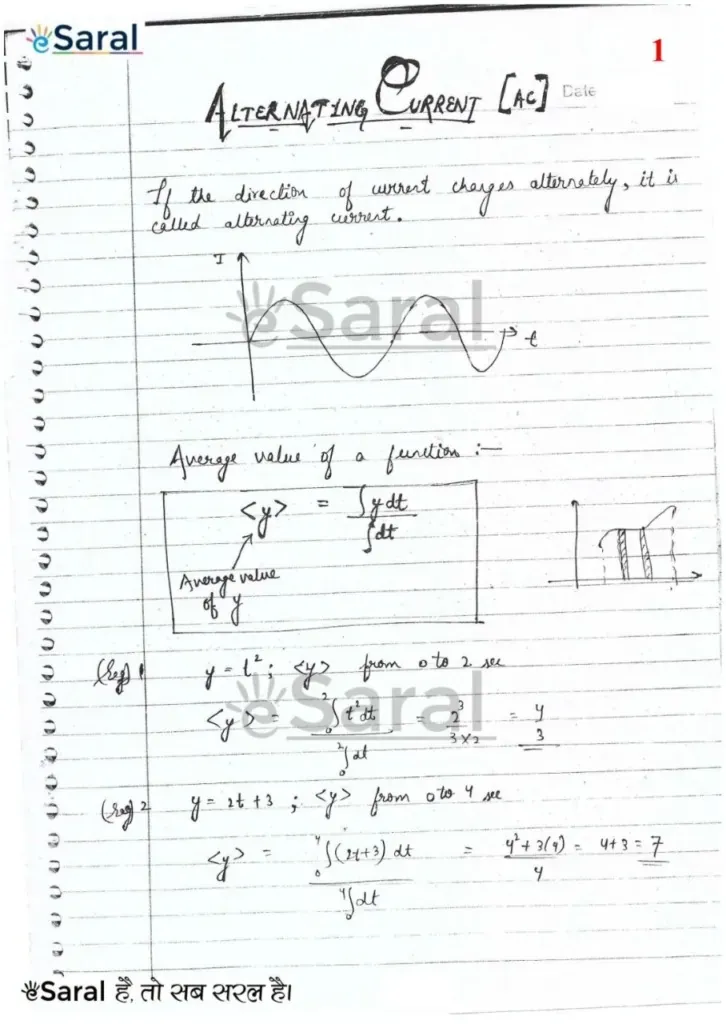 eSaral
1
ALTERNATING CURRENT [AC]
Date
If the direction of current changes alternately, it is
called alternating current.
I
eSaral
t
Average value of a function :—
<y> = ∫y dt / ∫dt
Average value
of y
(Eg) 1 y = t²; <y> from 0 to 2 sec
eSaral
<y> = ₀²∫t² dt / ₀²∫dt = 2³ / 3×2 = 4 / 3
(Eg) 2 y = 2t + 3 ; <y> from 0 to 4 sec
<y> = ₀⁴∫(2t+3) dt / ₀⁴∫dt = 4² + 3(4) / 4 = 4+3 = 7
eSaral है, तो सब सरल है।